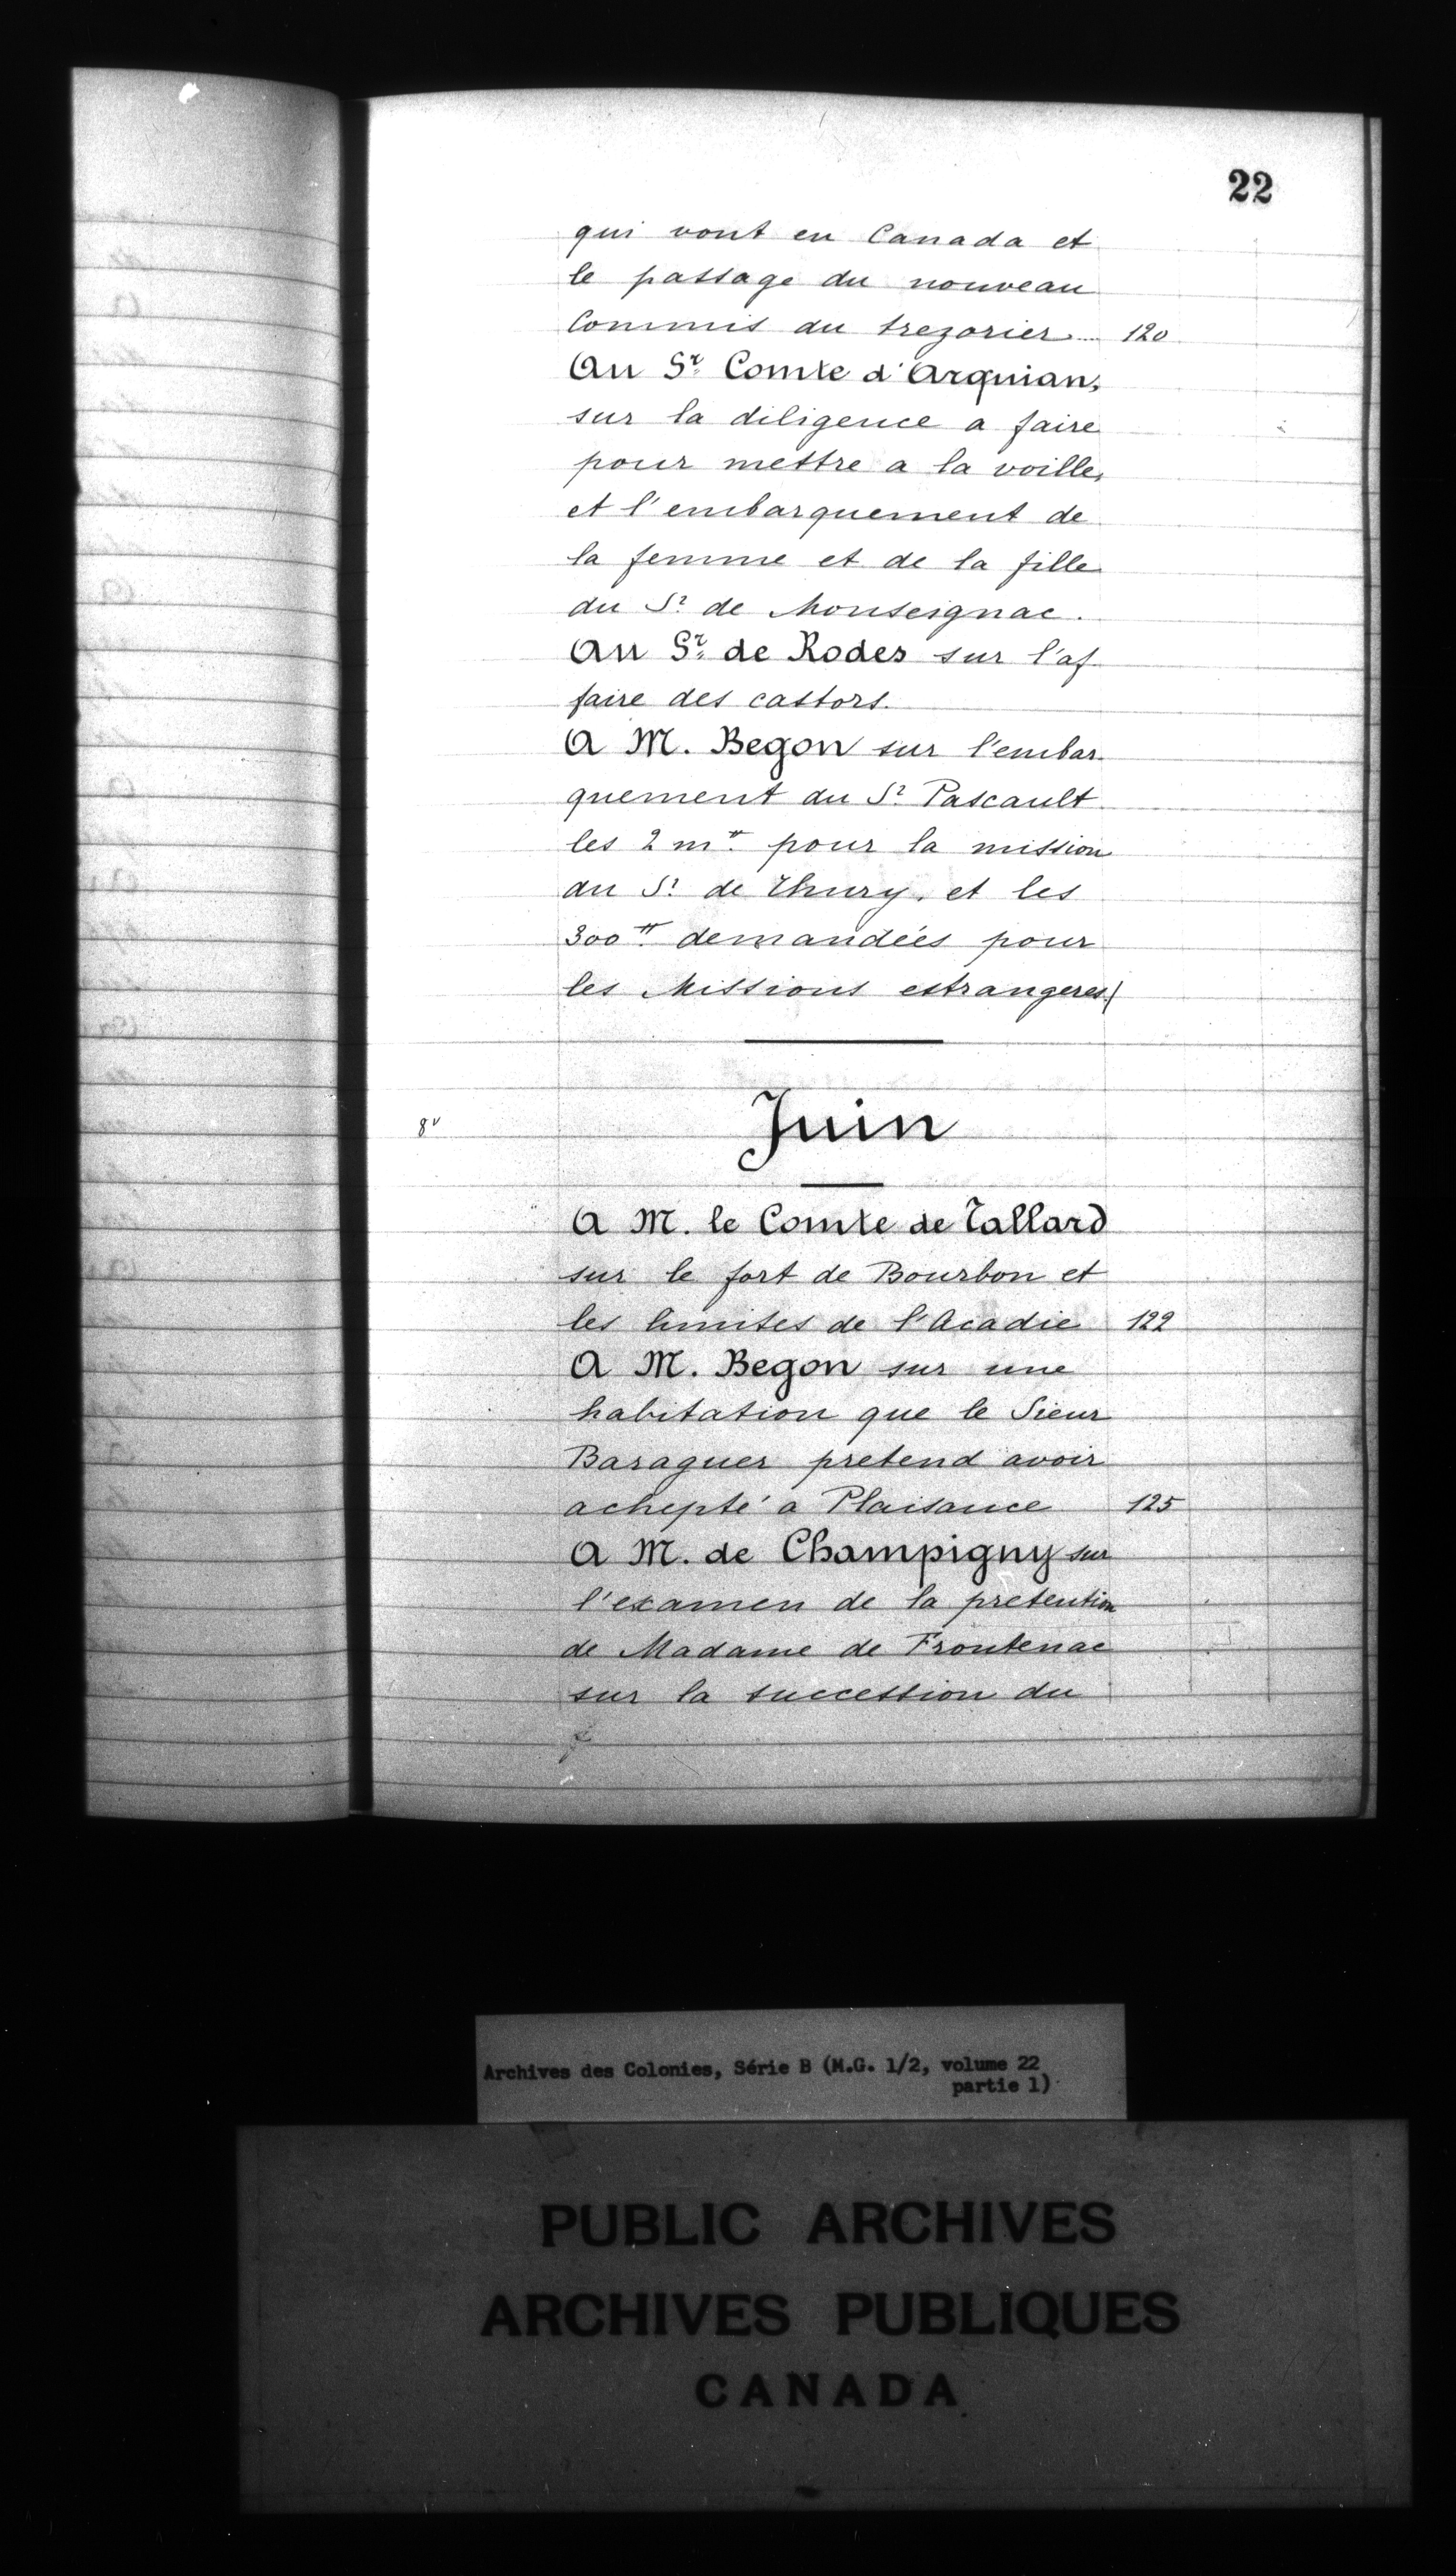 22
qui vont en Canada et
le passage du nouveau
Commis du trezorier... 120
Au Sr. Comte d'Arquian,
sur la diligence a faire
pour mettre a la voille,
et l'embarquement de
la femme et de la fille
du Sr. de Monseignac.
Au Sr. de Rodes sur l'af
faire des castors.
A M. Begon sur l'embar
quement du Sr. Pascault
les 2 m# pour la mission
du Sr. de Thury, et les
300# demandées pour
les Missions estrangeres
8v
Juin
A M. le Comte de Tallard
sur le fort de Bourbon et
les limites de l'Acadie 122
A M. Begon sur une
habitation que le Sieur
Baraguer pretend avoir
achepté a Plaisance 125
A M. de Champigny sur
l'examen de la pretention
de Madame de Frontenac
sur la succession du
Archives des Colonies, Série B (M.G. 1/2, volume 22
partie 1)
PUBLIC ARCHIVES
ARCHIVES PUBLIQUES
CANADA